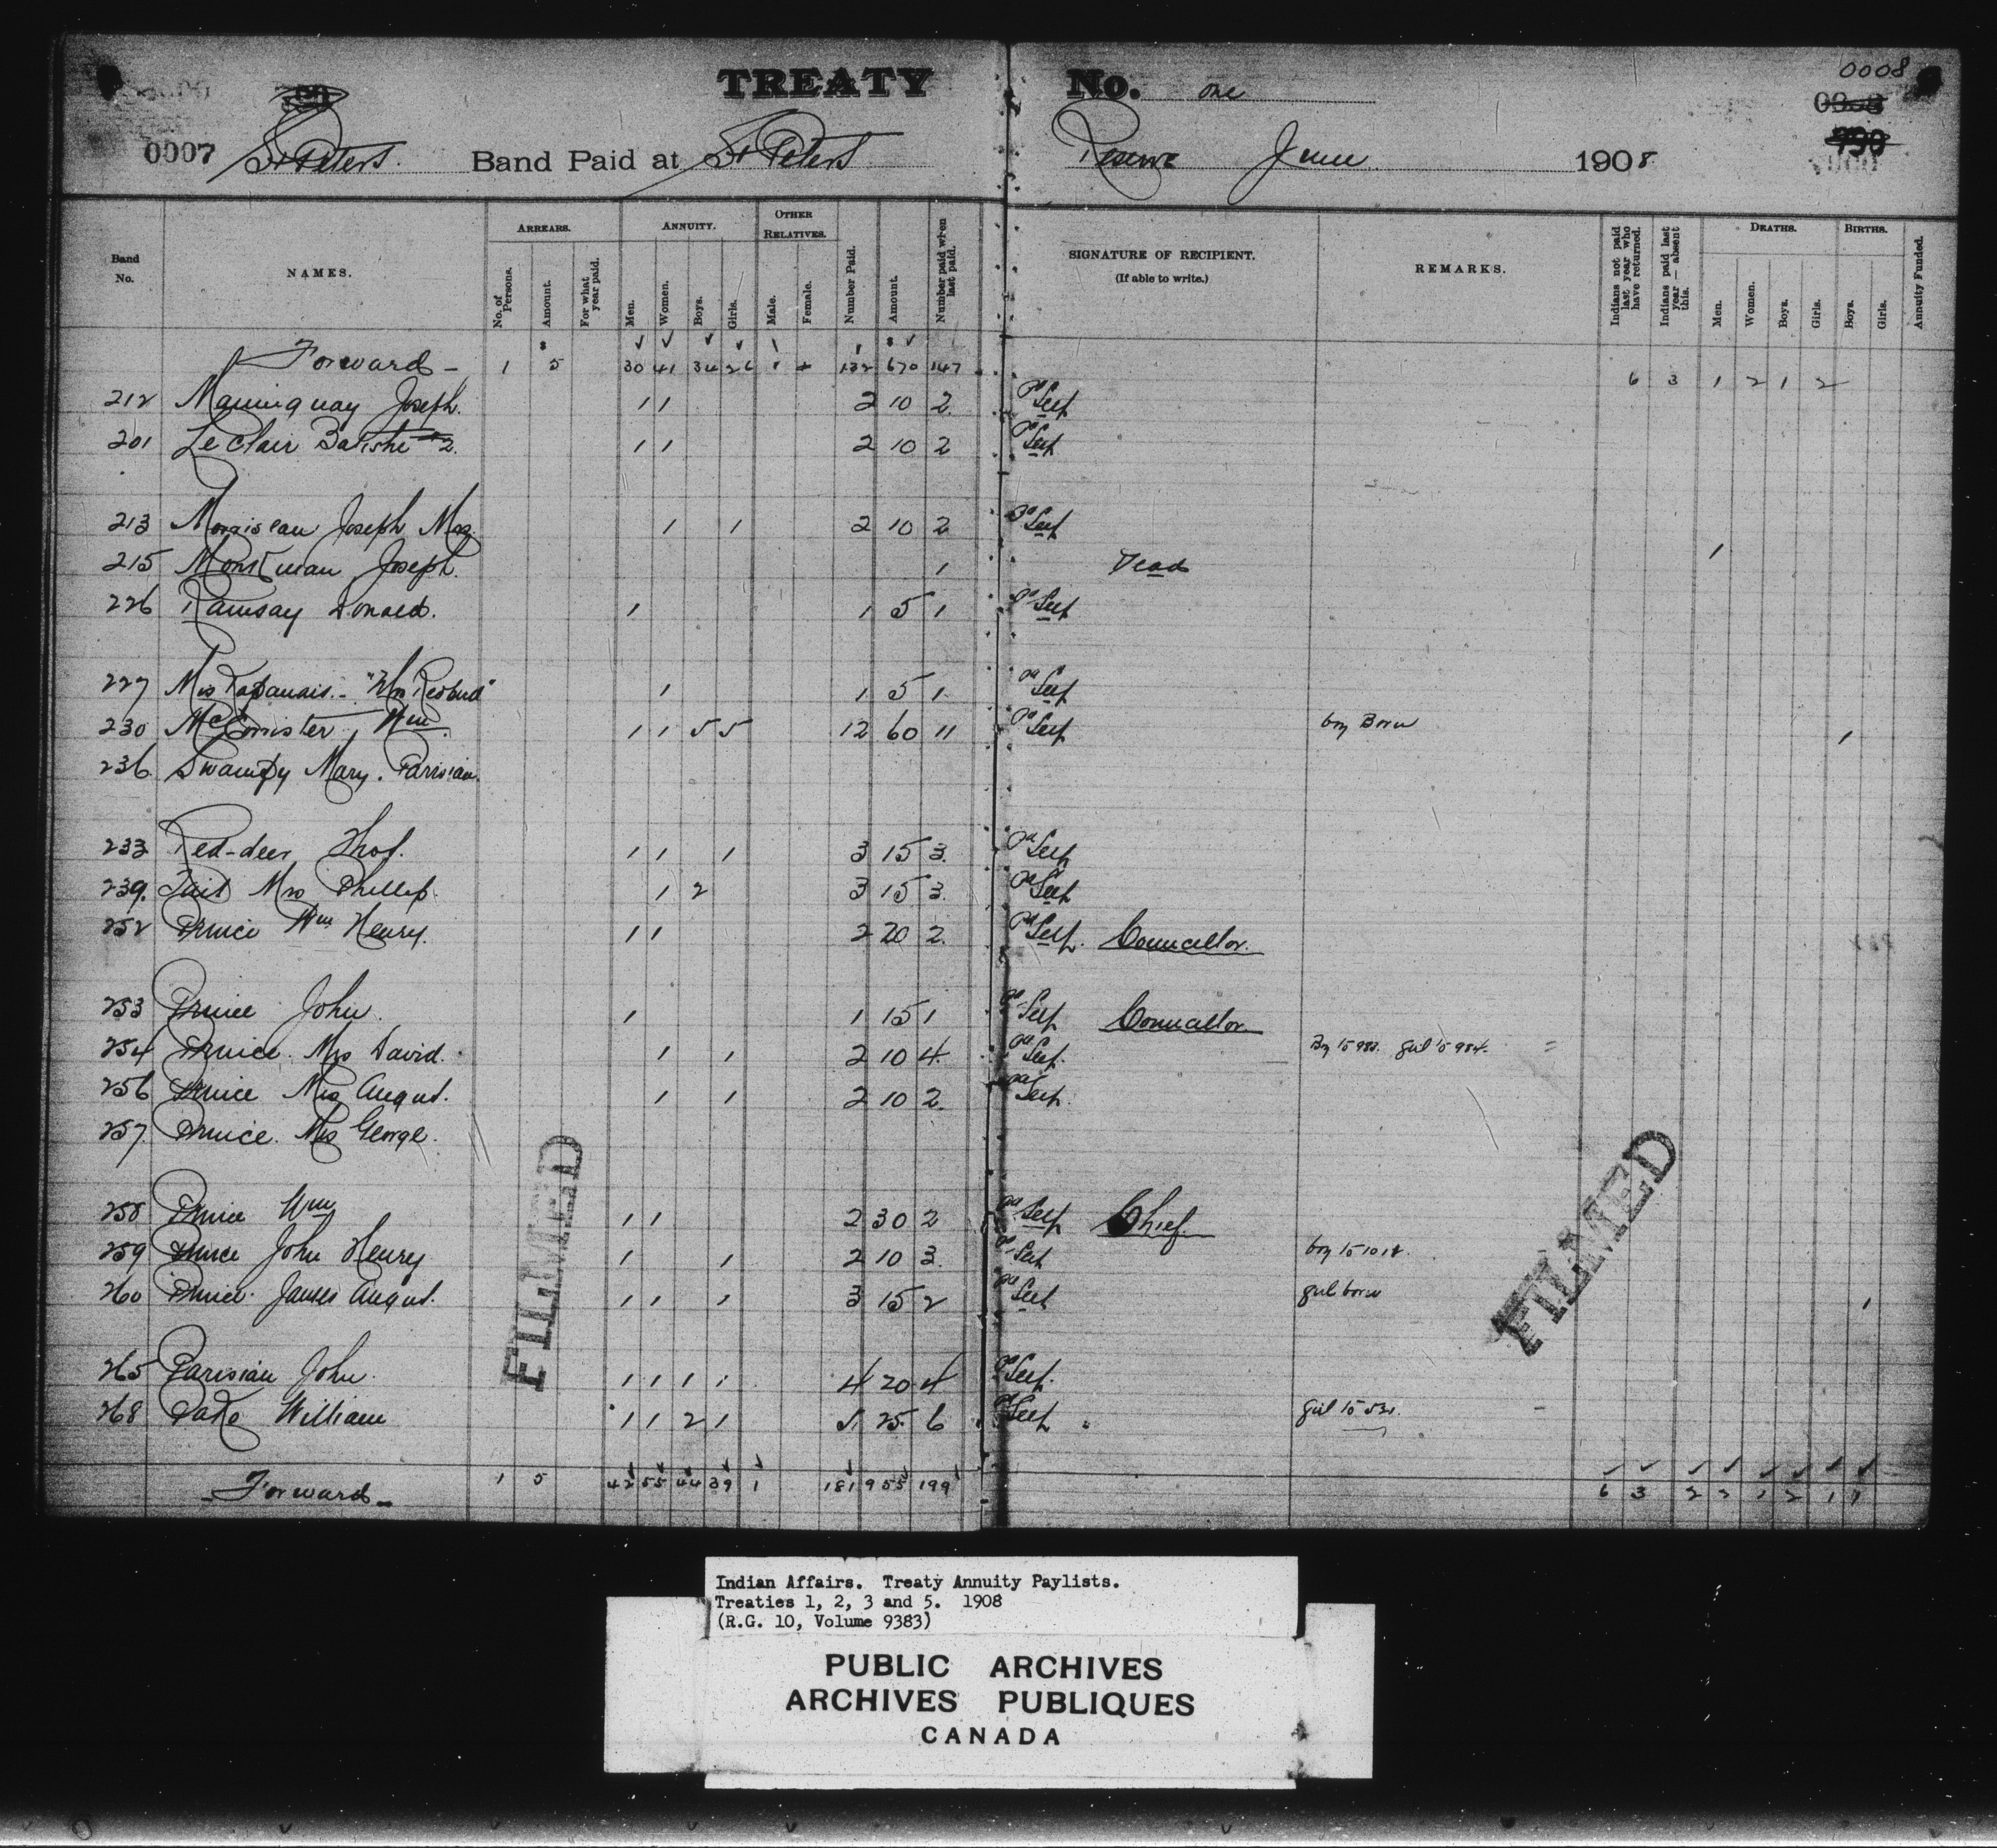 TREATY No. one
0008
0007 St Peters Band Paid at St Peters Reserve June 1908
Band No. NAMES. ARREARS. No. of Persons. Amount. For what year paid. ANNUITY. Men. Women. Boys. Girls. OTHER RELATIVES. Male. Female. Number Paid. Amount. Number paid when last paid. SIGNATURE OF RECIPIENT. (If able to write.) REMARKS. Indians not paid last year who have returned. Indians paid last year — absent this. DEATHS. Men. Women. Boys. Girls. BIRTHS. Boys. Girls. Annuity Funded.
Forward 1 5 30 41 34 26 1 132 670 147 6 3 1 2 1 2
212 Joseph. 1 1 2 10 2 Pd Self
201 LeClair Batishe #2. 1 1 2 10 2 Pd Self
213 Morriseau Joseph Mrs 1 1 2 10 2 Pd Self
215 Monkman Joseph. 1 Dead 1
226 Ramsay Donald. 1 1 5 1 Pd Self
227 Mrs 1 1 5 1 Pd Self
230 McCorrister, Wm. 1 1 5 5 12 60 11 Pd Self boy Born 1
236 Swampy Mary. Parisian.
233 Red-deer Thos. 1 1 1 3 15 3. Pd Self
239. Tait Mrs Phillip. 1 2 3 15 3. Pd Self
252 Prince Wm Henry. 1 1 2 20 2. Pd Self. Councillor.
253 Prince John. 1 1 15 1 Pd Self Councillor
254 Prince. Mrs David. 1 1 2 10 4. Pd Self.
256 Prince Mrs Angus. 1 1 2 10 2. Pd Self.
257 Prince. Mrs George.
258 Prince Wm 1 1 2 30 2 Pd Self Chief.
259 Prince John Henry 1 1 2 10 3. Pd Self boy to 1018.
260 Prince James Angus. 1 1 1 3 15 2 Pd Self girl born 1
265 Parisian John. 1 1 1 1 4 20 4 Pd Self.
268 William 1 1 2 1 5 25 6 Pd Self
Forward 1 5 42 55 44 39 1 181 955 199 6 3 2 2 1 2 1 1
FILMED
FILMED
Indian Affairs. Treaty Annuity Paylists.
Treaties 1, 2, 3 and 5. 1908
(R.G. 10, Volume 9383)
PUBLIC ARCHIVES
ARCHIVES PUBLIQUES
CANADA